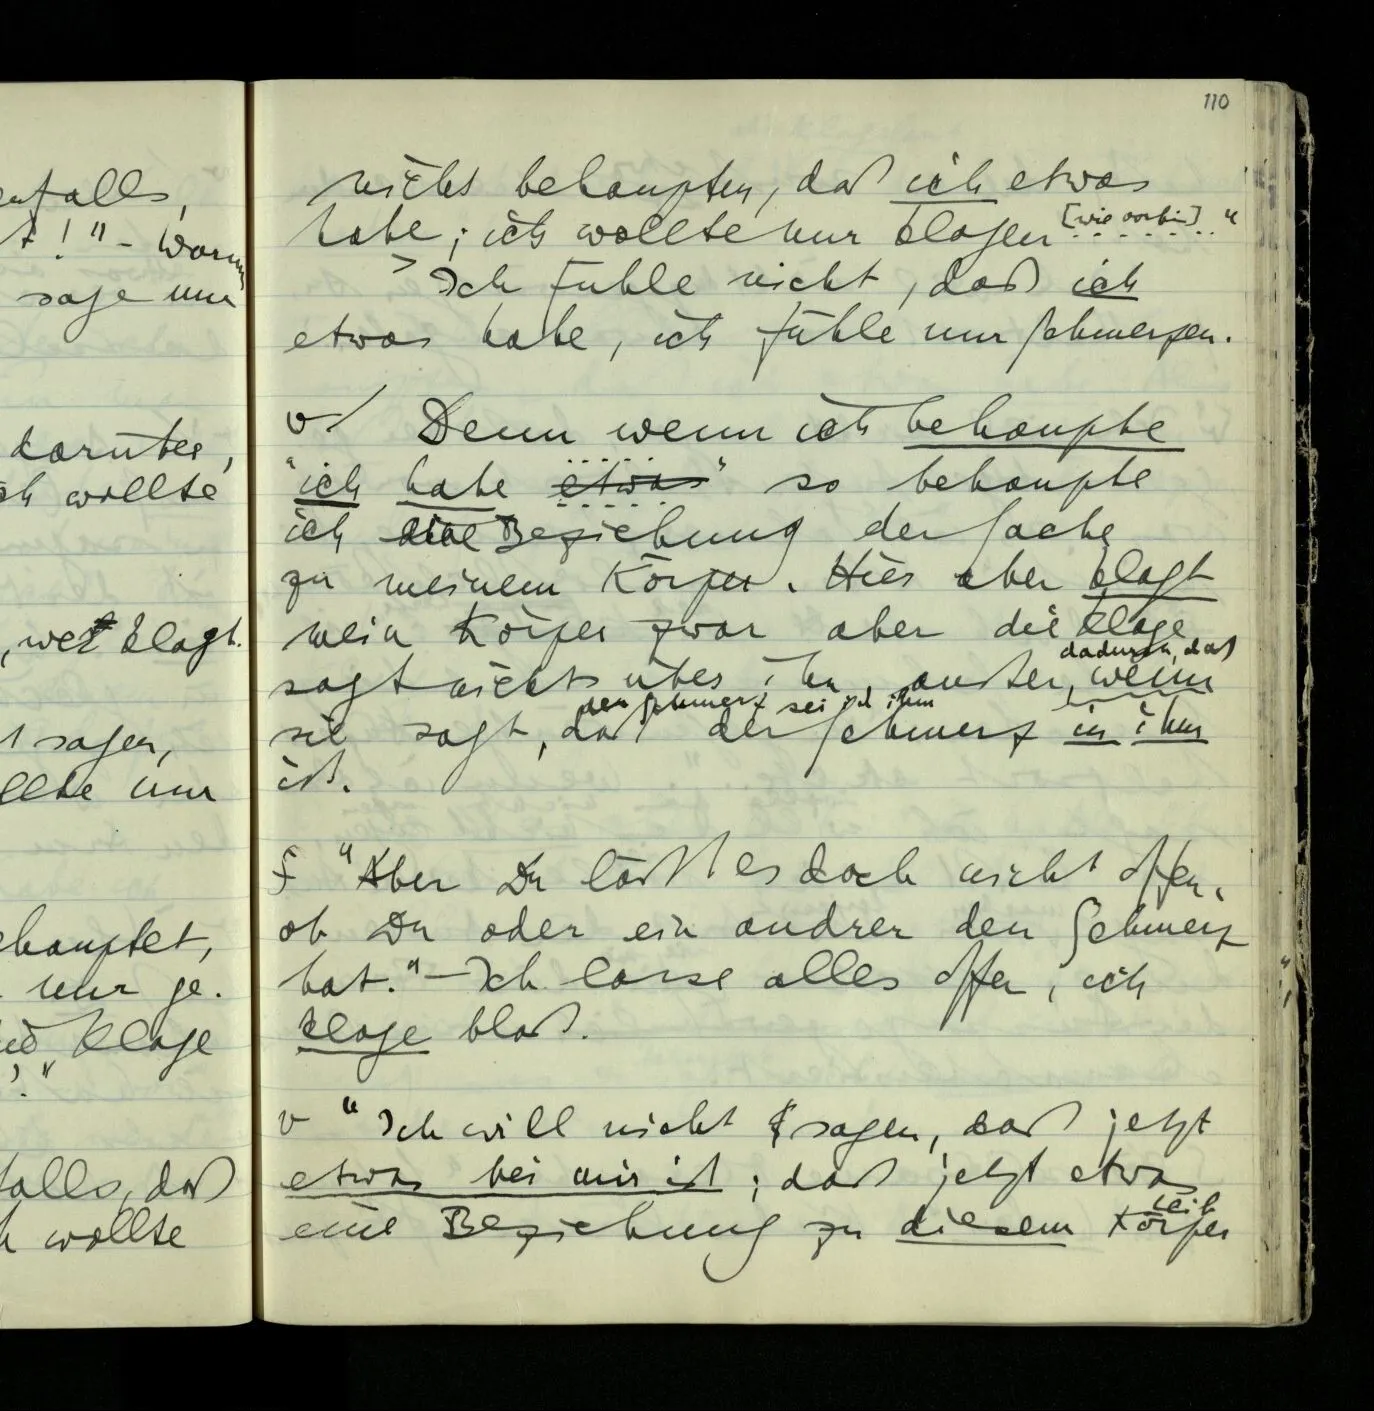 110
enfalls,
t!" – Warum
sage nur
darüber,
ch wollte
, wer klagt.
t sagen,
llte nur
ehauptet,
nur je.
Klage
falls, daß
h wollte
nichts behaupten, daß ich etwas
habe; ich wollte nur klagen [wie vorhin]."
> Ich fühle nicht, daß ich
etwas habe, ich fühle nur Schmerzen.
v/ Denn wenn ich behaupte
"ich habe etwas" so behaupte
ich eine Beziehung der Sache
zu meinem Körper. Hier aber klagt
mein Körper zwar aber die Klage
dadurch, daß
sagt nichts über ihn, außer, wenn
der Schmerz sei in ihm
sie sagt, daß der Schmerz in ihm
ist.
∫ "Aber Du läßt es doch nicht offen,
ob Du oder ein andrer den Schmerz
hat." – Ich lasse alles offen, ich
klage bloß.
v "Ich will nicht sagen, daß jetzt
etwas bei mir ist; daß jetzt etwas
Leib
eine Beziehung zu diesem Körper